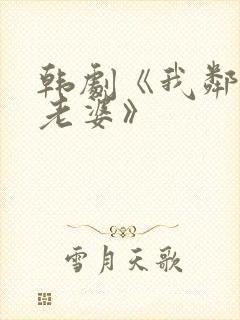 韩劇《我鄰
老婆》
雪月天歌